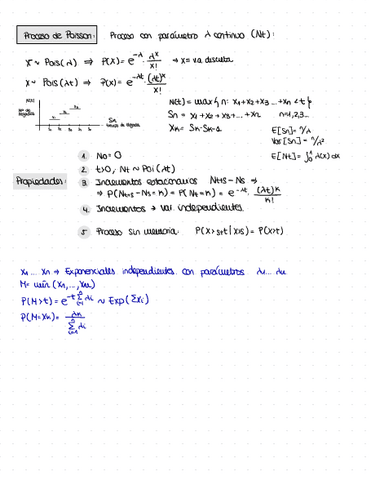 Proceso de Poisson: Proceso con parámetro λ continuo (Nt):
X ~ Pois(λ) ⇒ P(X) = e^-λ · λ^x / x! → x = va discreta
X ~ Pois(λt) ⇒ P(X) = e^-λt · (λt)^x / x!
N(t)
Nº de llegadas
Sn
N(t) = max{n: X1 + X2 + X3 ... + Xn < t}
Sn = X1 + X2 + X3 + ... + Xn n = 1,2,3...
Xn = Sn - Sn-1
E[Sn] = n/λ
Var[Sn] = n/λ²
E[Nt] = ∫ λ(x) dx
Propiedades:
1. N0 = 0
2. t>0, Nt ~ Poi(λt)
3. Incrementos estacionarios Nt+s - Ns ⇒
⇒ P(Nt+s - Ns = k) = P(Nt = k) = e^-λt · (λt)^k / k!
4. Incrementos → var. independientes.
5. Proceso sin memoria: P(X > s+t | X > s) = P(X > t)
X1 ... Xn → Exponenciales independientes con parámetros λ1 ... λn
M = min(X1, ..., Xn)
P(M > t) = e^-t Σ λi ~ Exp(Σ λi)
P(M = Xk) = λk / Σ λi